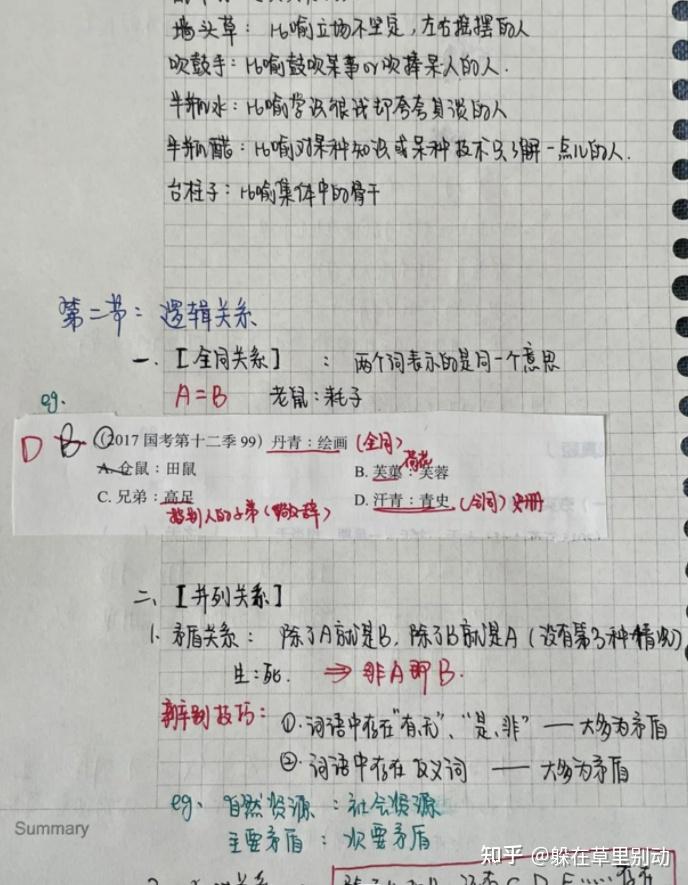 墙头草：比喻立场不坚定，左右摇摆的人
吹鼓手：比喻鼓吹某事or吹捧某人的人.
半瓶水：比喻学识很浅却夸夸其谈的人
半瓶醋：比喻对某种知识或某种技术只了解一点儿的人.
台柱子：比喻集体中的骨干
第二节：逻辑关系
一. [全同关系] ：两个词表示的是同一个意思
eg. A=B 老鼠：耗子
D B (2017 国考第十二季 99) 丹青：绘画 (全同)
A. 仓鼠：田鼠 B. 芙蕖：芙蓉 荷花
C. 兄弟：高足 D. 汗青：青史 (全同) 史册
指别人的子弟(敬辞)
二. [并列关系]
1. 矛盾关系： 除了A就是B，除了B就是A (没有第3种情况)
生：死. ⇒ 非A即B.
辨别技巧： ①. 词语中存在"有、无"、"是、非" — 大多为矛盾
②. 词语中存在反义词 — 大多为矛盾
eg. 自然资源 ：社会资源
主要矛盾 ：次要矛盾
Summary
知乎 @躲在草里别动